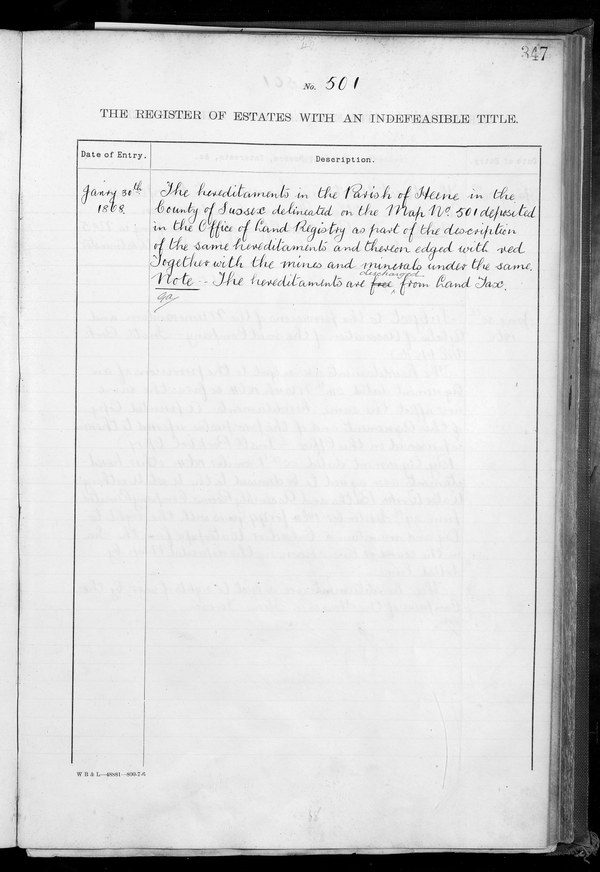 347
No. 501
THE REGISTER OF ESTATES WITH AN INDEFEASIBLE TITLE.
Date of Entry.
Description.
Janry 30th
1868.
The hereditaments in the Parish of Heene in the
County of Sussex delineated on the Map No. 501 deposited
in the Office of Land Registry as part of the description
of the same hereditaments and thereon edged with red
Together with the mines and minerals under the same.
discharged
Note - The hereditaments are free from Land Tax.
W B & L